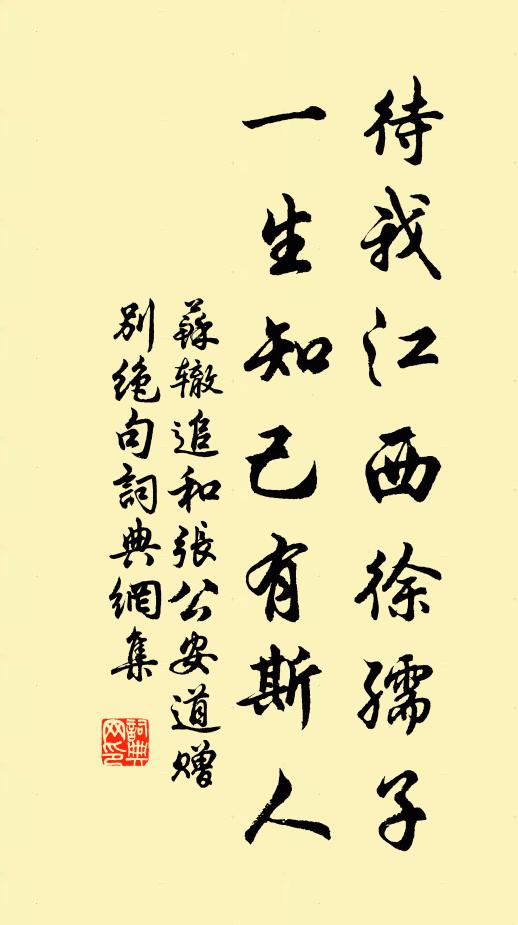 待我江西徐孺子
一生知己有斯人
蘇轍追和張公安道贈
別絶句詞典網集
詞典
网印